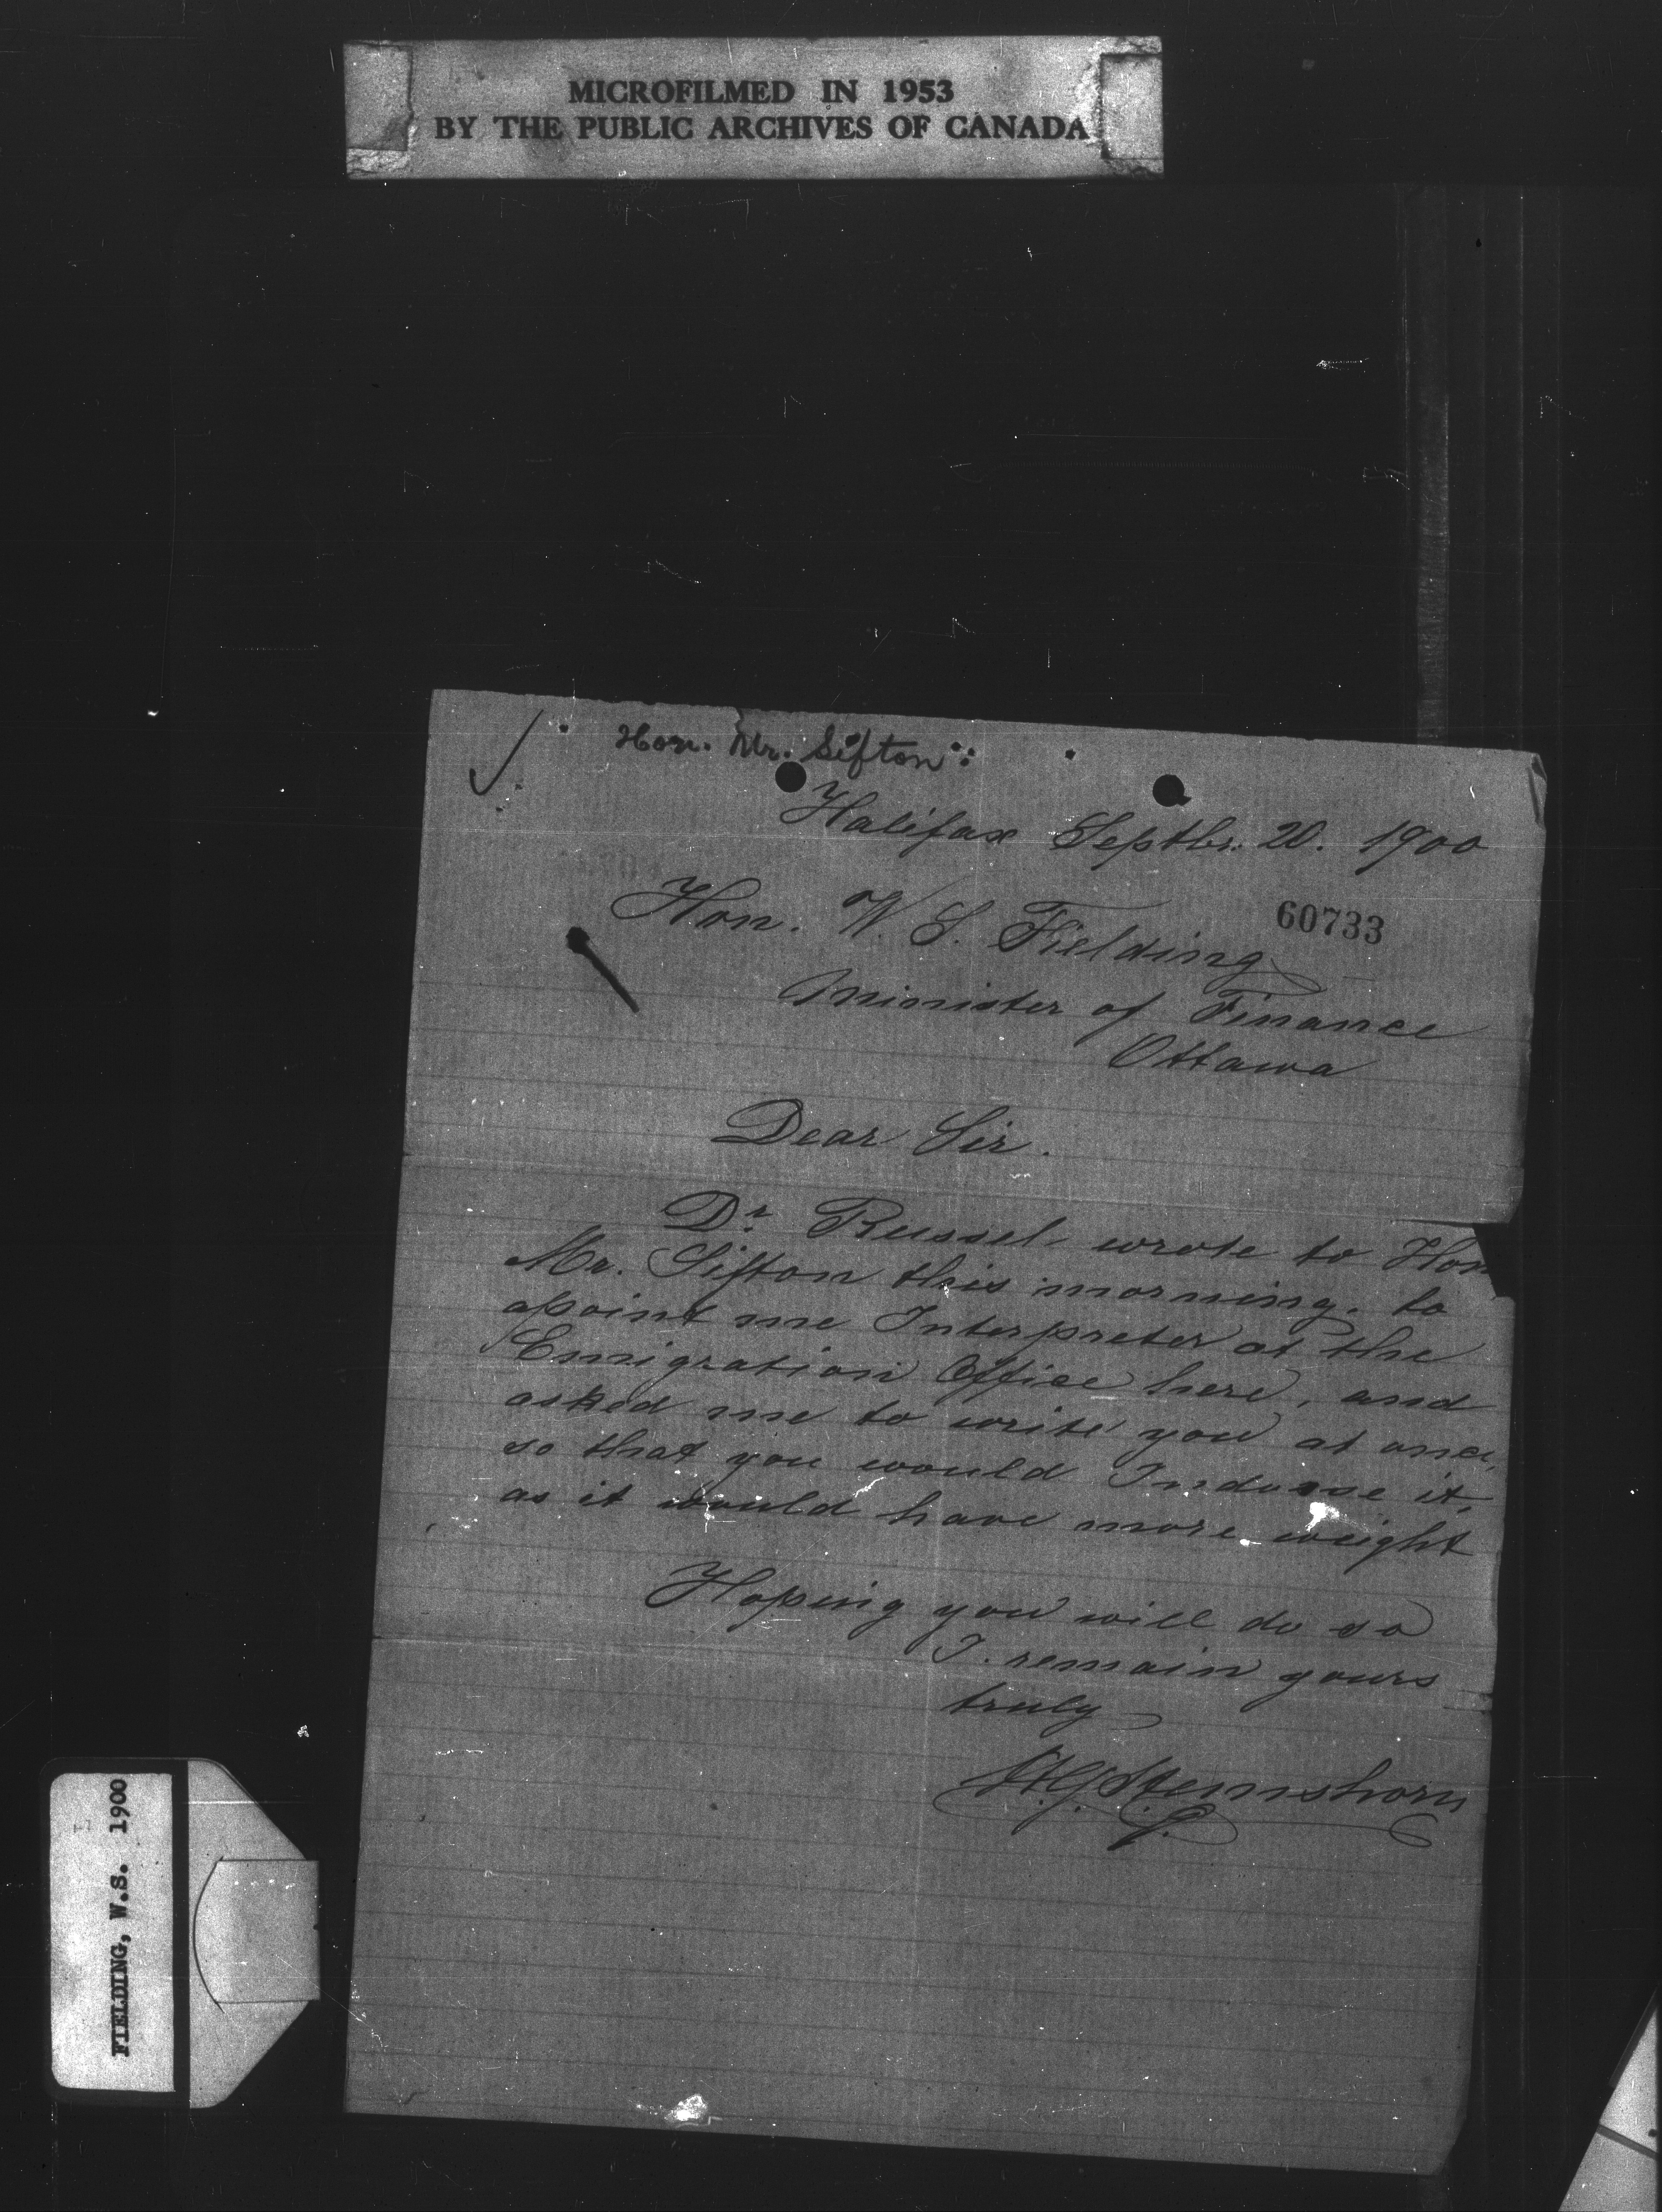 MICROFILMED IN 1953
BY THE PUBLIC ARCHIVES OF CANADA
Hon. Mr. Sifton:
Halifax Septbr. 20. 1900
60733
Hon. W. S. Fielding
Minister of Finance
Ottawa
Dear Sir.
Dr Russel wrote to Hon
Mr. Sifton this morning. to
apoint me Interpreter at the
Emigration Office here, and
asked me to write you at once,
so that you would Indorse it,
as it would have more weight
Hoping you will do so
I. remain yours
truly
Hemshorn
FIELDING, W.S. 1900